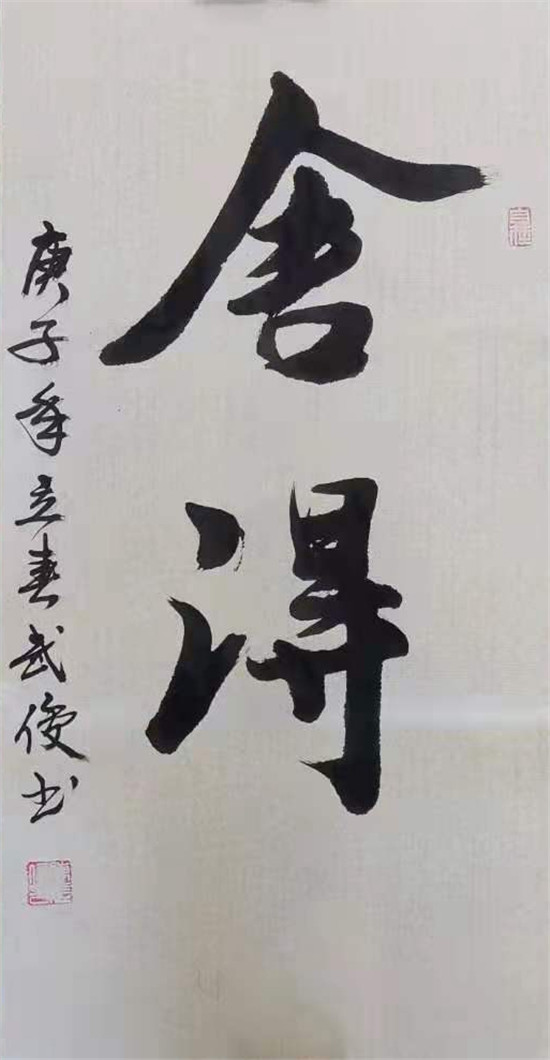 舍得
庚子年立春武俊书